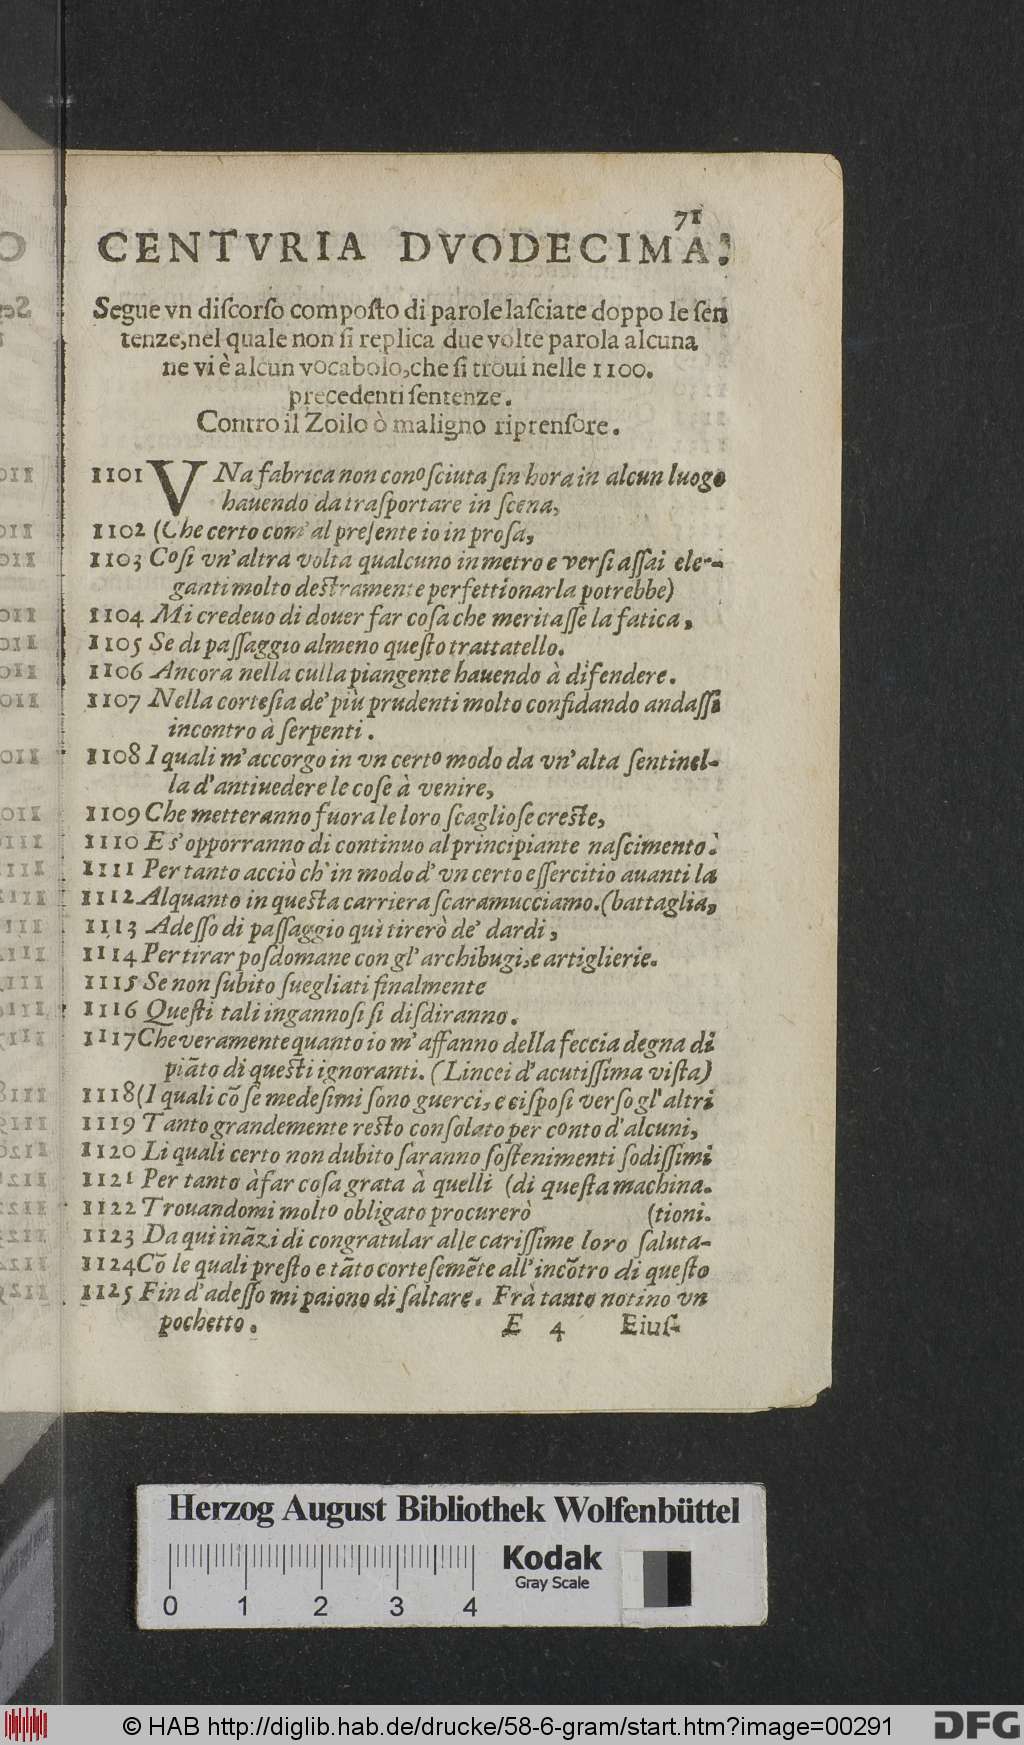 71
CENTVRIA DVODECIMA.
Segue vn diſcorſo compoſto di parole laſciate doppo le ſen
tenze,nel quale non ſi replica due volte parola alcuna
ne vi è alcun vocabolo,che ſi troui nelle 1100.
precedenti ſentenze.
Contro il Zoilo ò maligno riprenſore.
1101 VNa fabrica non conoſciuta ſin hora in alcun luogo
hauendo da traſportare in ſcena,
1102 (Che certo com' al preſente io in proſa,
1103 Coſi vn' altra volta qualcuno in metro e verſi aſſai ele-
ganti molto deſtramente perfettionarla potrebbe)
1104 Mi credeuo di douer far coſa che meritaſſe la fatica,
1105 Se di paſſaggio almeno queſto trattatello.
1106 Ancora nella culla piangente hauendo à difendere.
1107 Nella corteſia de' più prudenti molto confidando andaſſi
incontro à ſerpenti.
1108 I quali m' accorgo in vn certo modo da vn' alta ſentinel-
la d' antiuedere le coſe à venire,
1109 Che metteranno fuora le loro ſcaglioſe creſte,
1110 E s' opporranno di continuo al principiante naſcimento.
1111 Per tanto acciò ch' in modo d' vn certo eſſercitio auanti la
1112 Alquanto in queſta carriera ſcaramucciamo.(battaglia,
1113 Adeſſo di paſſaggio quì tirerò de' dardi,
1114 Per tirar poſdomane con gl' archibugi,e artiglierie.
1115 Se non ſubito ſuegliati finalmente
1116 Queſti tali ingannoſi ſi diſdiranno.
1117 Che veramente quanto io m' affanno della feccia degna di
piāto di queſti ignoranti. (Lincei d' acutiſſima viſta)
1118 (I quali cō ſe medeſimi ſono guerci, e ciſpoſi verſo gl' altri
1119 Tanto grandemente reſto conſolato per conto d' alcuni,
1120 Li quali certo non dubito ſaranno ſoſtenimenti ſodiſſimi
1121 Per tanto à far coſa grata à quelli (di queſta machina.
1122 Trouandomi molto obligato procurerò (tioni.
1123 Da qui ināzi di congratular alle cariſſime loro ſaluta-
1124 Cō le quali preſto e tāto corteſemēte all' incōtro di queſto
1125 Fin d' adeſſo mi paiono di ſaltare. Frà tanto notino vn
pochetto. E 4 Eiuſ-
Herzog August Bibliothek Wolfenbüttel
Kodak
Gray Scale
0 1 2 3 4
© HAB http://diglib.hab.de/drucke/58-6-gram/start.htm?image=00291
DFG